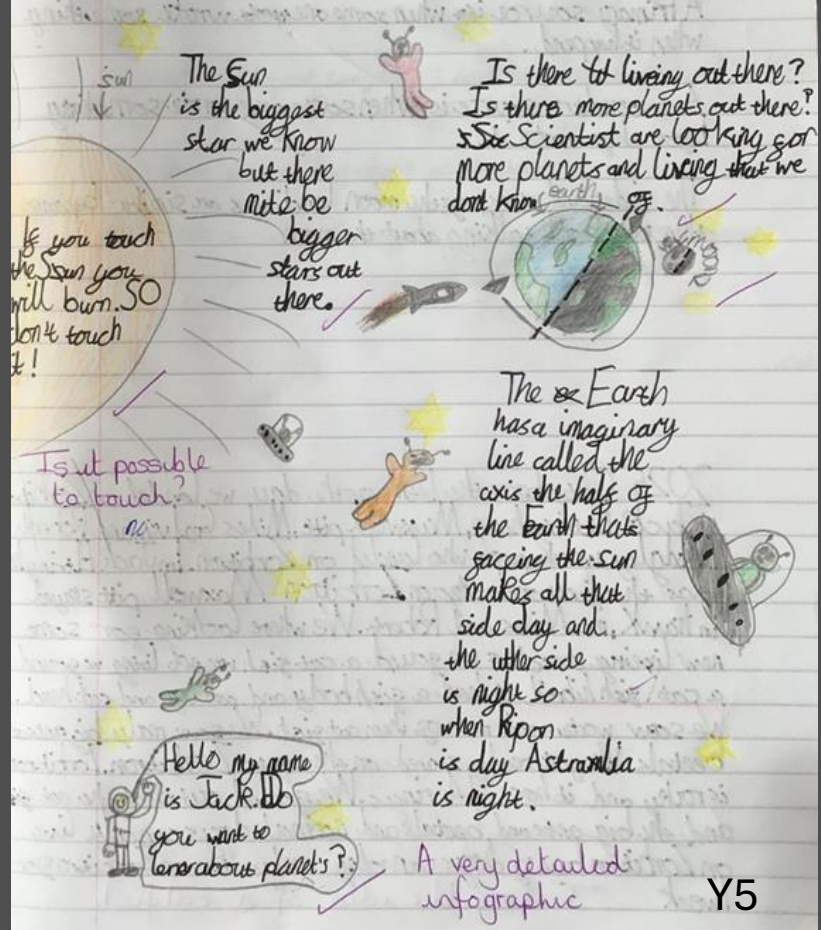 sun
The Sun
is the biggest
star we know
but there
mite be
bigger
stars out
there.
Is there liveing out there?
Is there more planets out there?
Scientist are looking for
more planets and living that we
dont know of.
earth
moon
If you touch
the Sun you
will burn. SO
don't touch
it!
Is it possible
to touch?
no
The Earth
has a imaginary
line called the
axis the half of
the Earth thats
faceing the sun
makes all that
side day and
the uther side
is night so
when Ripon
is day Astramlia
is night.
Hello my name
is Jack. Do
you want to
lenar about planet's?
A very detailed
infographic
Y5